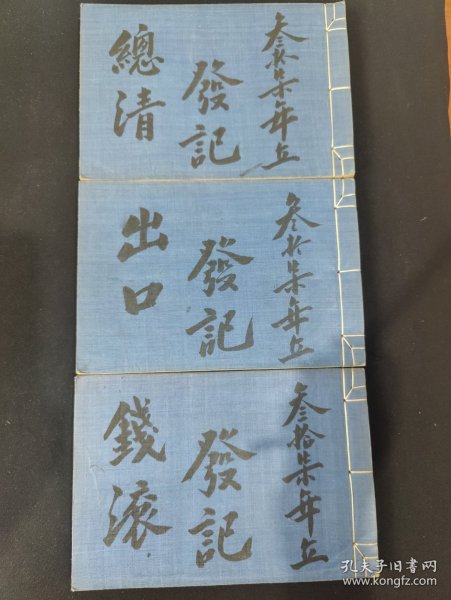 叁拾柒年立
發記
總清
叁拾柒年立
發記
出口
叁拾柒年立
發記
錢滚
孔夫子旧书网
kongfz.com